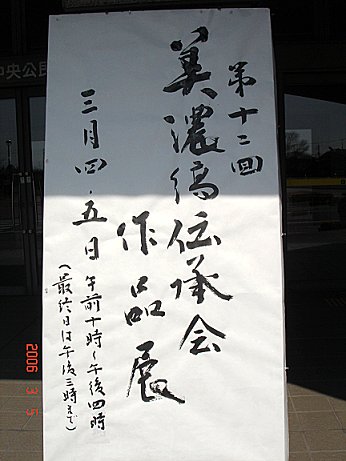 第十二回
美濃縞伝承会
作品展
三月四・五日
午前十時~午後四時
(最終日は午後三時まで)
中央公民
2006 3 5